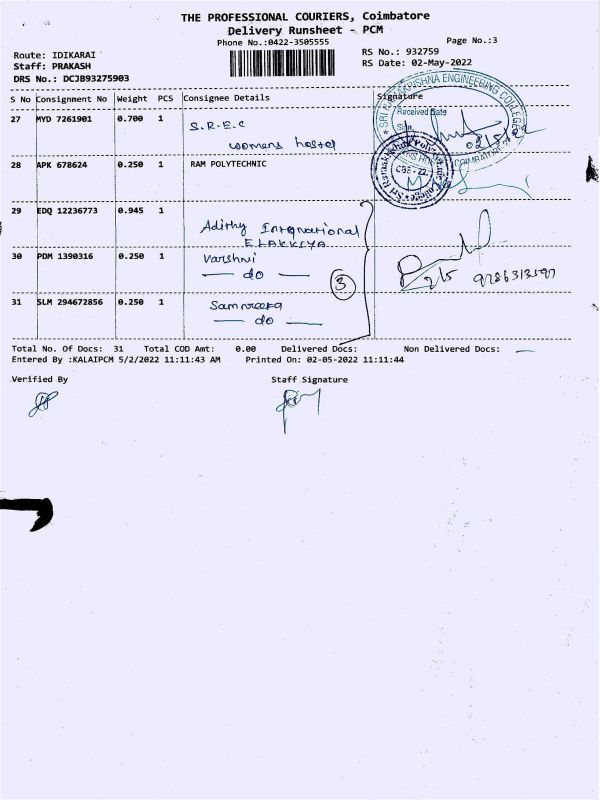 THE PROFESSIONAL COURIERS, Coimbatore
Delivery Runsheet - PCM
Phone No.:0422-3505555
Page No.:3
Route: IDIKARAI
RS No.: 932759
Staff: PRAKASH
RS Date: 02-May-2022
DRS No.: DCJB93275903
S No Consignment No Weight PCS Consignee Details Signature
27 MYD 7261901 0.700 1 S.R.E.C
womens hostel
SRI RAMAKRISHNA ENGINEERING COLLEGE
Received Date
Sign
COIMBATORE
02/5/22
28 APK 678624 0.250 1 RAM POLYTECHNIC
Sri Ramakrishna Polytechnic College
CBE-22
29 EDQ 12236773 0.945 1 Adithy International
ELAKKIYA
30 PDM 1390316 0.250 1 Varshni
— do —
3
2/5
31 SLM 294672856 0.250 1
— do —
Total No. Of Docs: 31 Total COD Amt: 0.00 Delivered Docs: Non Delivered Docs: —
Entered By :KALAIPCM 5/2/2022 11:11:43 AM Printed On: 02-05-2022 11:11:44
Verified By Staff Signature